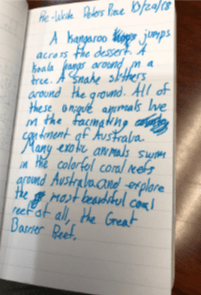 Pre-Write Peters Rose 10/29/18
A Kangaroo jumps
across the dessert. A
Koala jumps around in a
tree. A snake slithers
around the ground. All of
these unique animals live
in the facinating
continent of Australia.
Many exotic animals swim
in the colorful coral reefs
around Australia and explore
the most beautiful coral
reef of all, the Great
Barrier Reef.